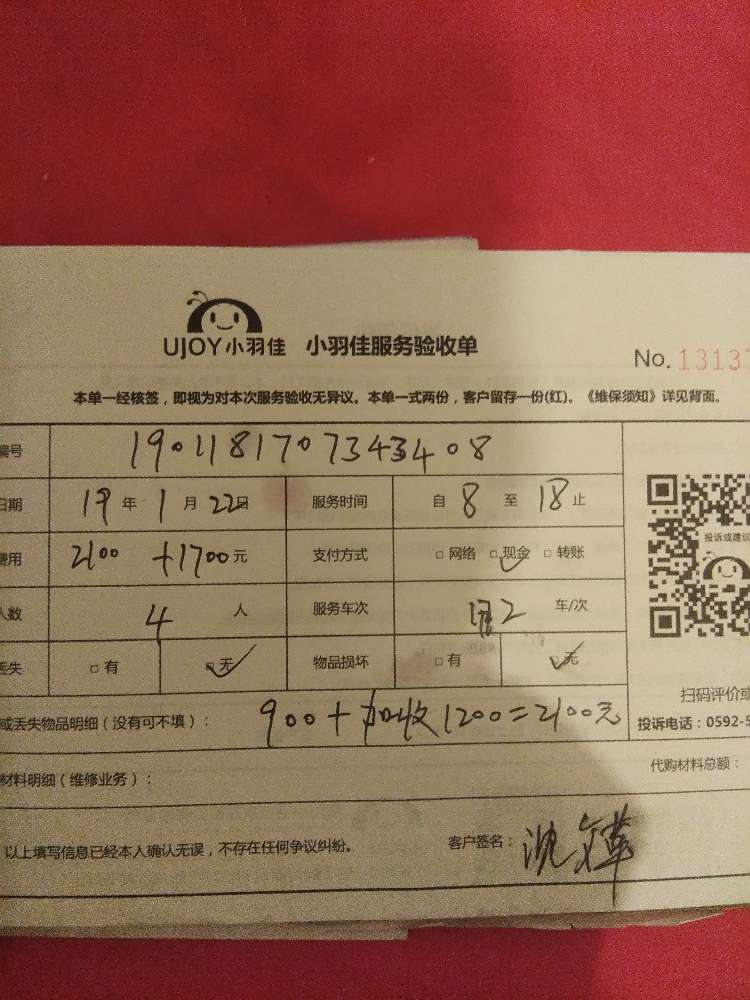 UJOY小羽佳 小羽佳服务验收单
No. 13137
本单一经核签，即视为对本次服务验收无异议。本单一式两份，客户留存一份(红)。《维保须知》详见背面。
编号 1901181707343408
日期 19年1月22日 服务时间 自8至18止
费用 2100+1700元 支付方式 □网络 □现金 □转账
人数 4人 服务车次 2车/次
投诉或建议
丢失 □有 □无 物品损坏 □有 □无
扫码评价或
或丢失物品明细（没有可不填）： 900+加收1200=2100元
投诉电话：0592-5
材料明细（维修业务）： 代购材料总额：
以上填写信息已经本人确认无误，不存在任何争议纠纷。 客户签名：沈